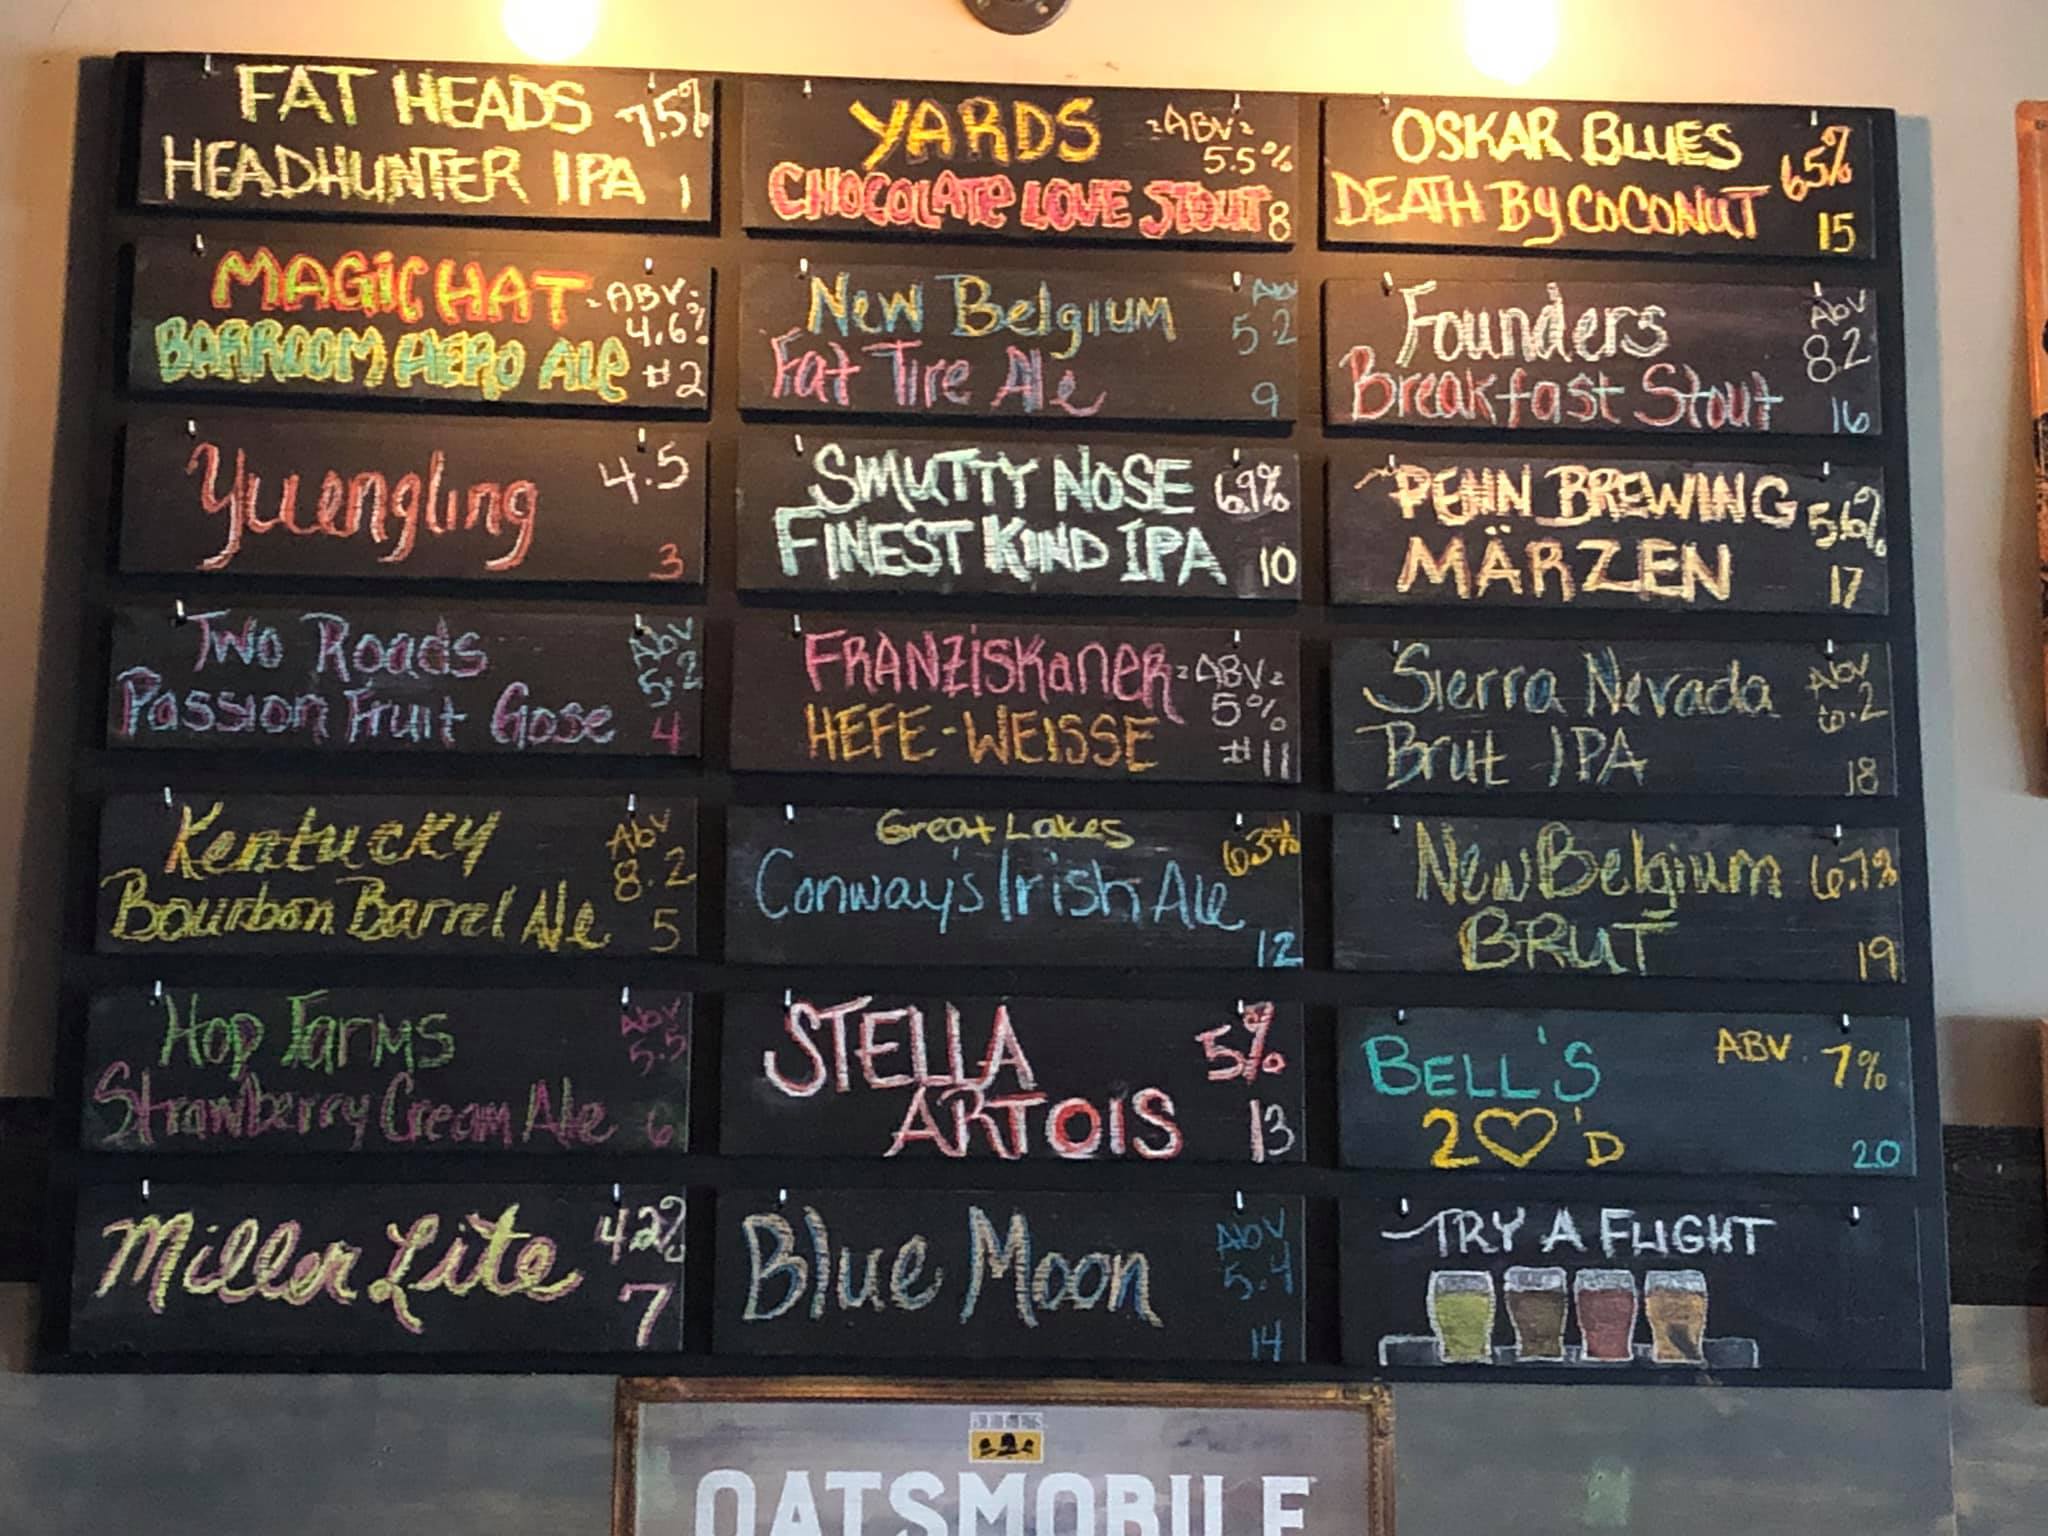 FAT HEADS 7.5%
HEADHUNTER IPA 1
MAGIC HAT -ABV-
4.6%
BARROOM HERO ALE #2
Yuengling 4.5
3
Two Roads Abv
5.2
Passion Fruit Gose 4
Kentucky Abv
8.2
Bourbon Barrel Ale 5
Hop Farms Abv
5.5
Strawberry Cream Ale 6
Miller Lite 4.2%
7
YARDS -ABV-
5.5%
CHOCOLATE LOVE STOUT 8
New Belgium Abv
5.2
Fat Tire Ale 9
SMUTTY NOSE 6.9%
FINEST KIND IPA 10
FRANZISKANER -ABV-
5%
HEFE-WEISSE #11
Great Lakes 6.5%
Conway's Irish Ale
12
STELLA 5%
ARTOIS 13
Blue Moon Abv
5.4
14
OSKAR BLUES 6.5%
DEATH BY COCONUT 15
Founders Abv
8.2
Breakfast Stout 16
PENN BREWING 5.6%
MÄRZEN 17
Sierra Nevada Abv
6.2
Brut IPA 18
New Belgium 6.7%
BRUT 19
BELL'S ABV. 7%
2♡'D 20
TRY A FLIGHT
BELL'S
OATSMOBILE